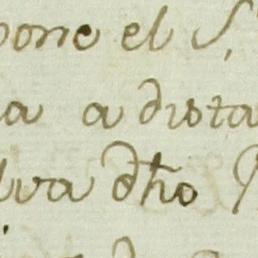 pone el S.
a a dista
lva dho